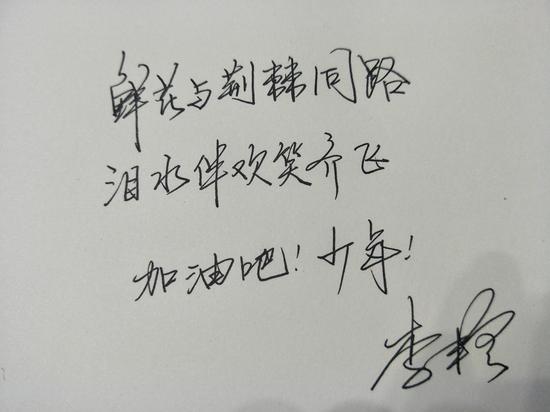 鲜花与荆棘同路
泪水伴欢笑齐飞
加油吧！少年！
李